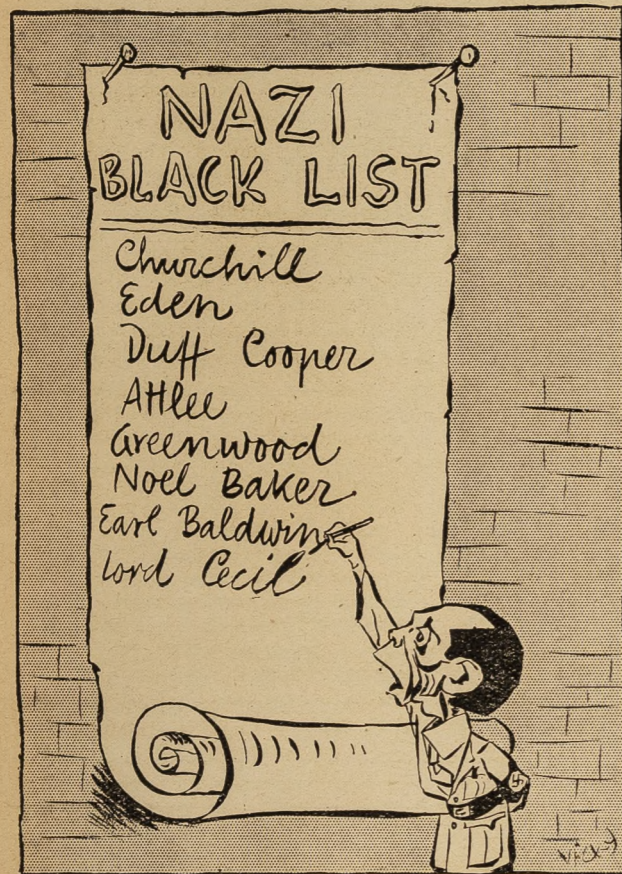 NAZI
BLACK LIST
Churchill
Eden
Duff Cooper
Attlee
Greenwood
Noel Baker
Earl Baldwin
Lord Cecil
Vicky